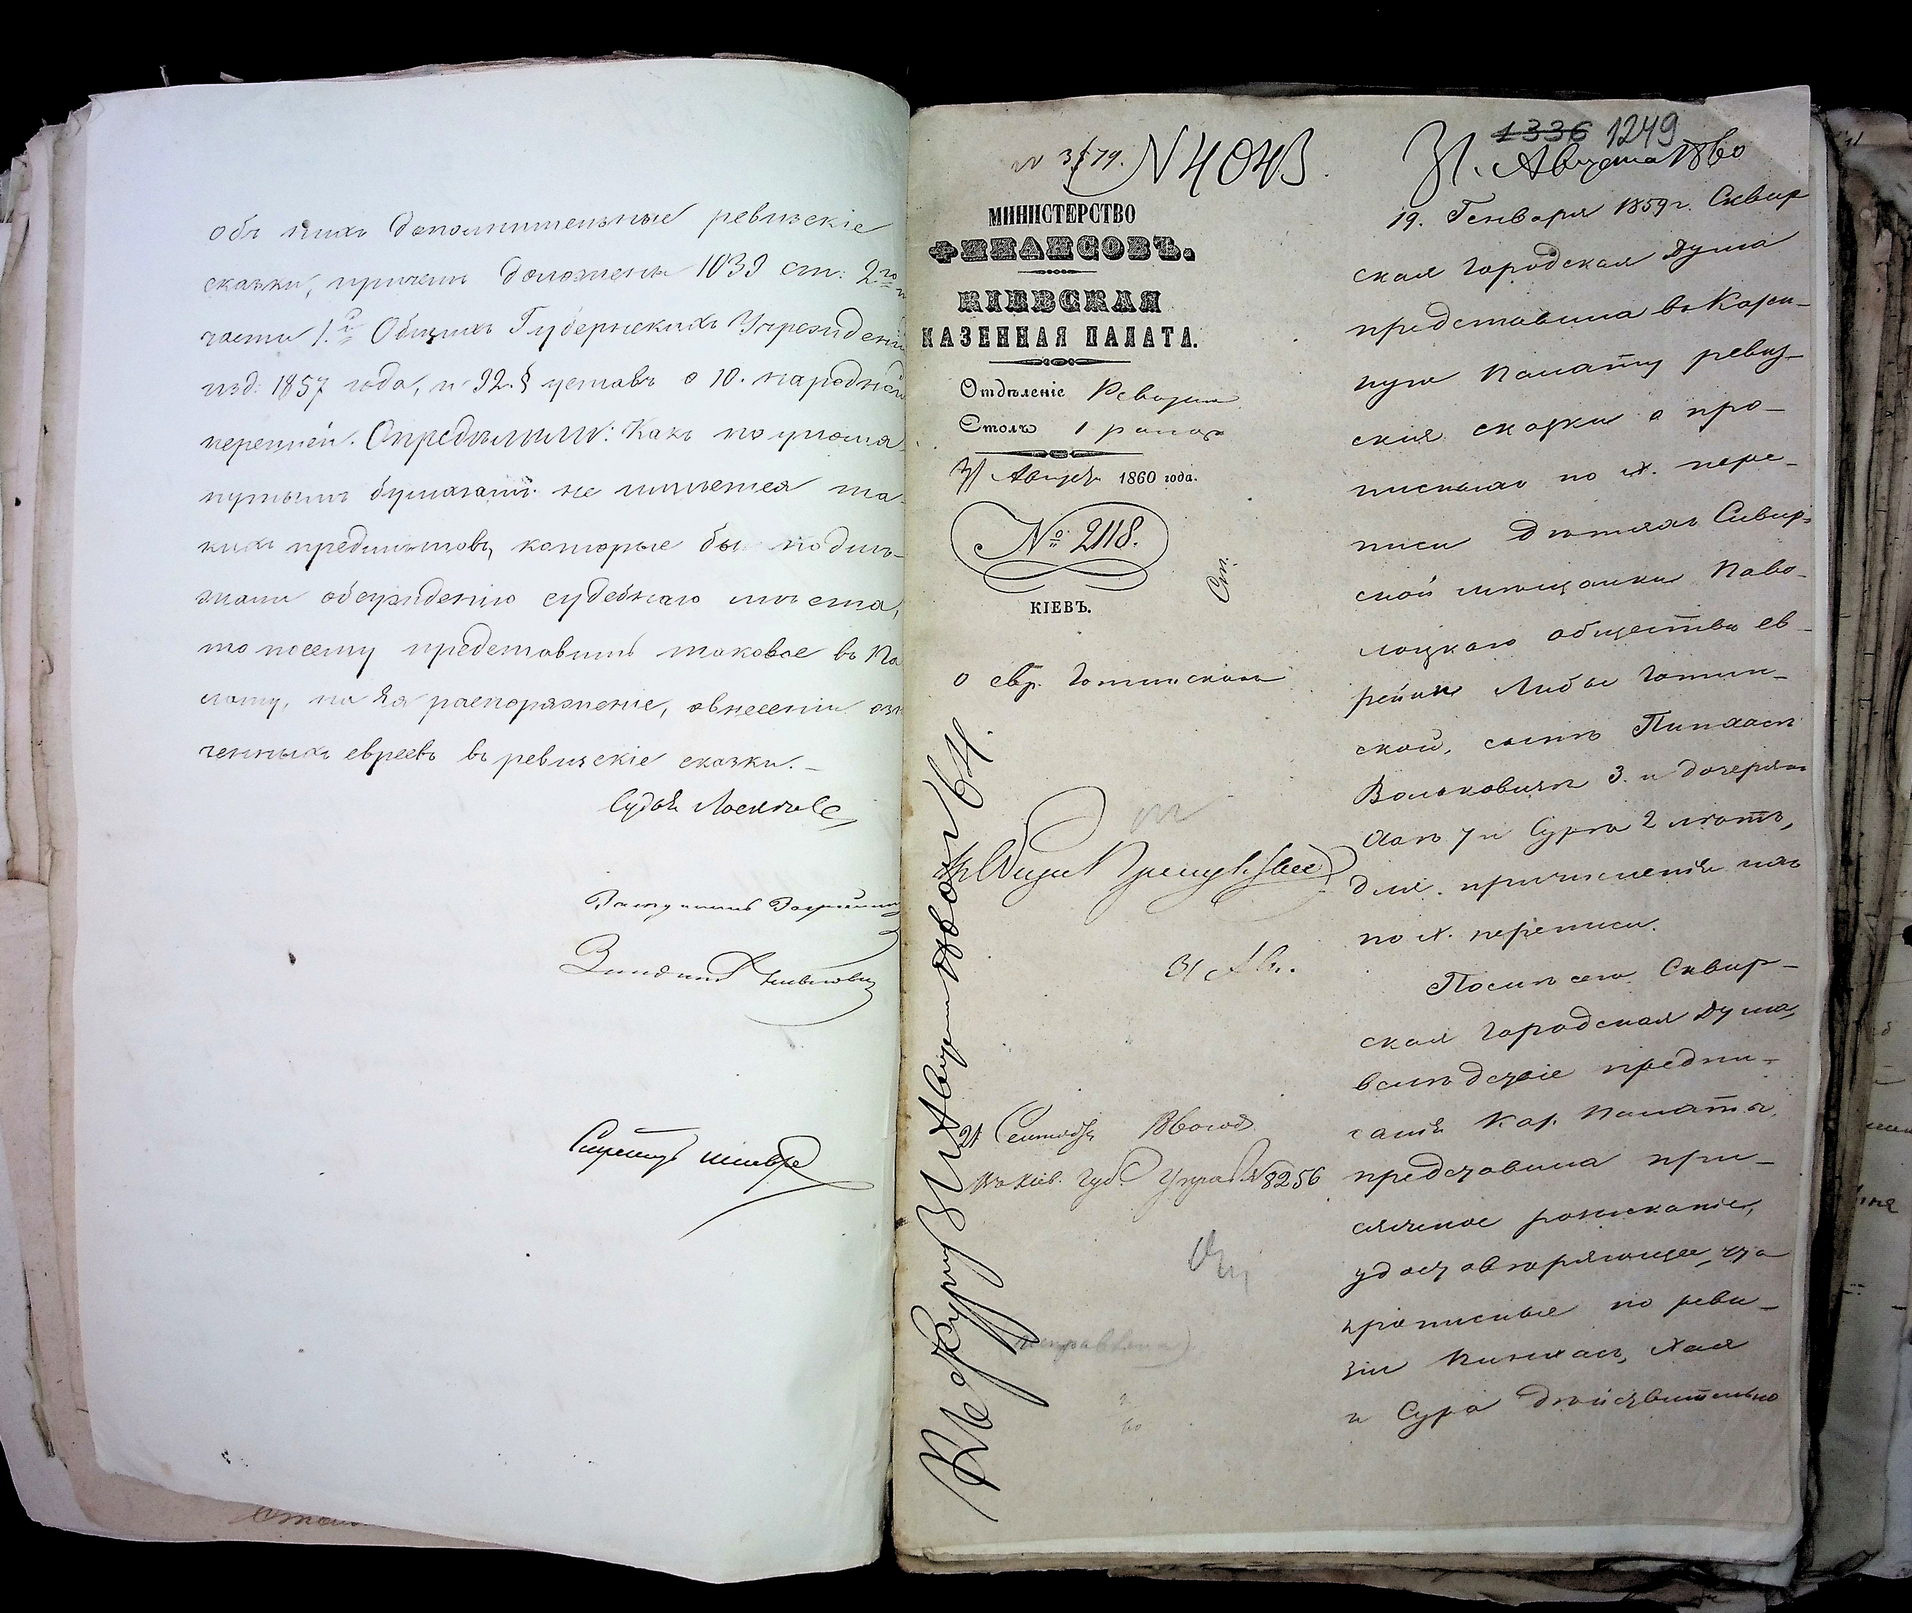 объ нихъ дополнительные ревизскіе
сказки, причемъ доложены 1039 ст: 2го
части 1.й Общихъ Губернскихъ Учрежденій
изд: 1857 года, и 92.§ устава о 10. народной
переписи. Опредѣлили: Какъ по упомя
нутымъ бумагамъ не имѣется та-
кихъ предметовъ, которые бы подле-
жали обсужденію судебнаго мѣста,
то посему представить таковое въ Па
лату, на Ея распоряженіе, о внесеніи озн
ченныхъ евреевъ въ ревизскіе сказки.
Судья
Секретарь
1336 1249
№ 4043
31. Августа 1860
МИНИСТЕРСТВО
ФИНАНСОВЪ.
КІЕВСКАЯ
КАЗЕННАЯ ПАЛАТА.
Отдѣленіе Ревизіи
Столъ 1
31 Августа 1860 года.
№ 2118.
КІЕВЪ.
о евр. Готинскихъ
31 Ав.
21 Сентября 1860 года
Губ. Управ № 8256
Къ журналу 31 Августа 1860 г. ст. 64.
19. Генваря 1859 г. Сквир
ская Городская Дума
представила въ Казен-
ную Палату ревиз-
скія сказки о про-
писныхъ по X. пере-
писи дѣтяхъ Сквир-
ской мѣщанки Паво-
лоцкаго общества ев-
рейки Либы Готин-
ской, сынѣ Пинхасѣ
Вольковичѣ 3. и дочеряхъ
Хаѣ 7 и Сурѣ 2 лѣтъ,
для причисленія ихъ
по X. переписи.
Послѣ сего Сквир-
ская Городская Дума,
вслѣдствіе предпи-
санія Каз. Палаты,
представила при-
сяжное розысканіе,
удостовѣряющее, что
прописные по реви-
зіи Пинхасъ, Хая
и Сура дѣйствительно